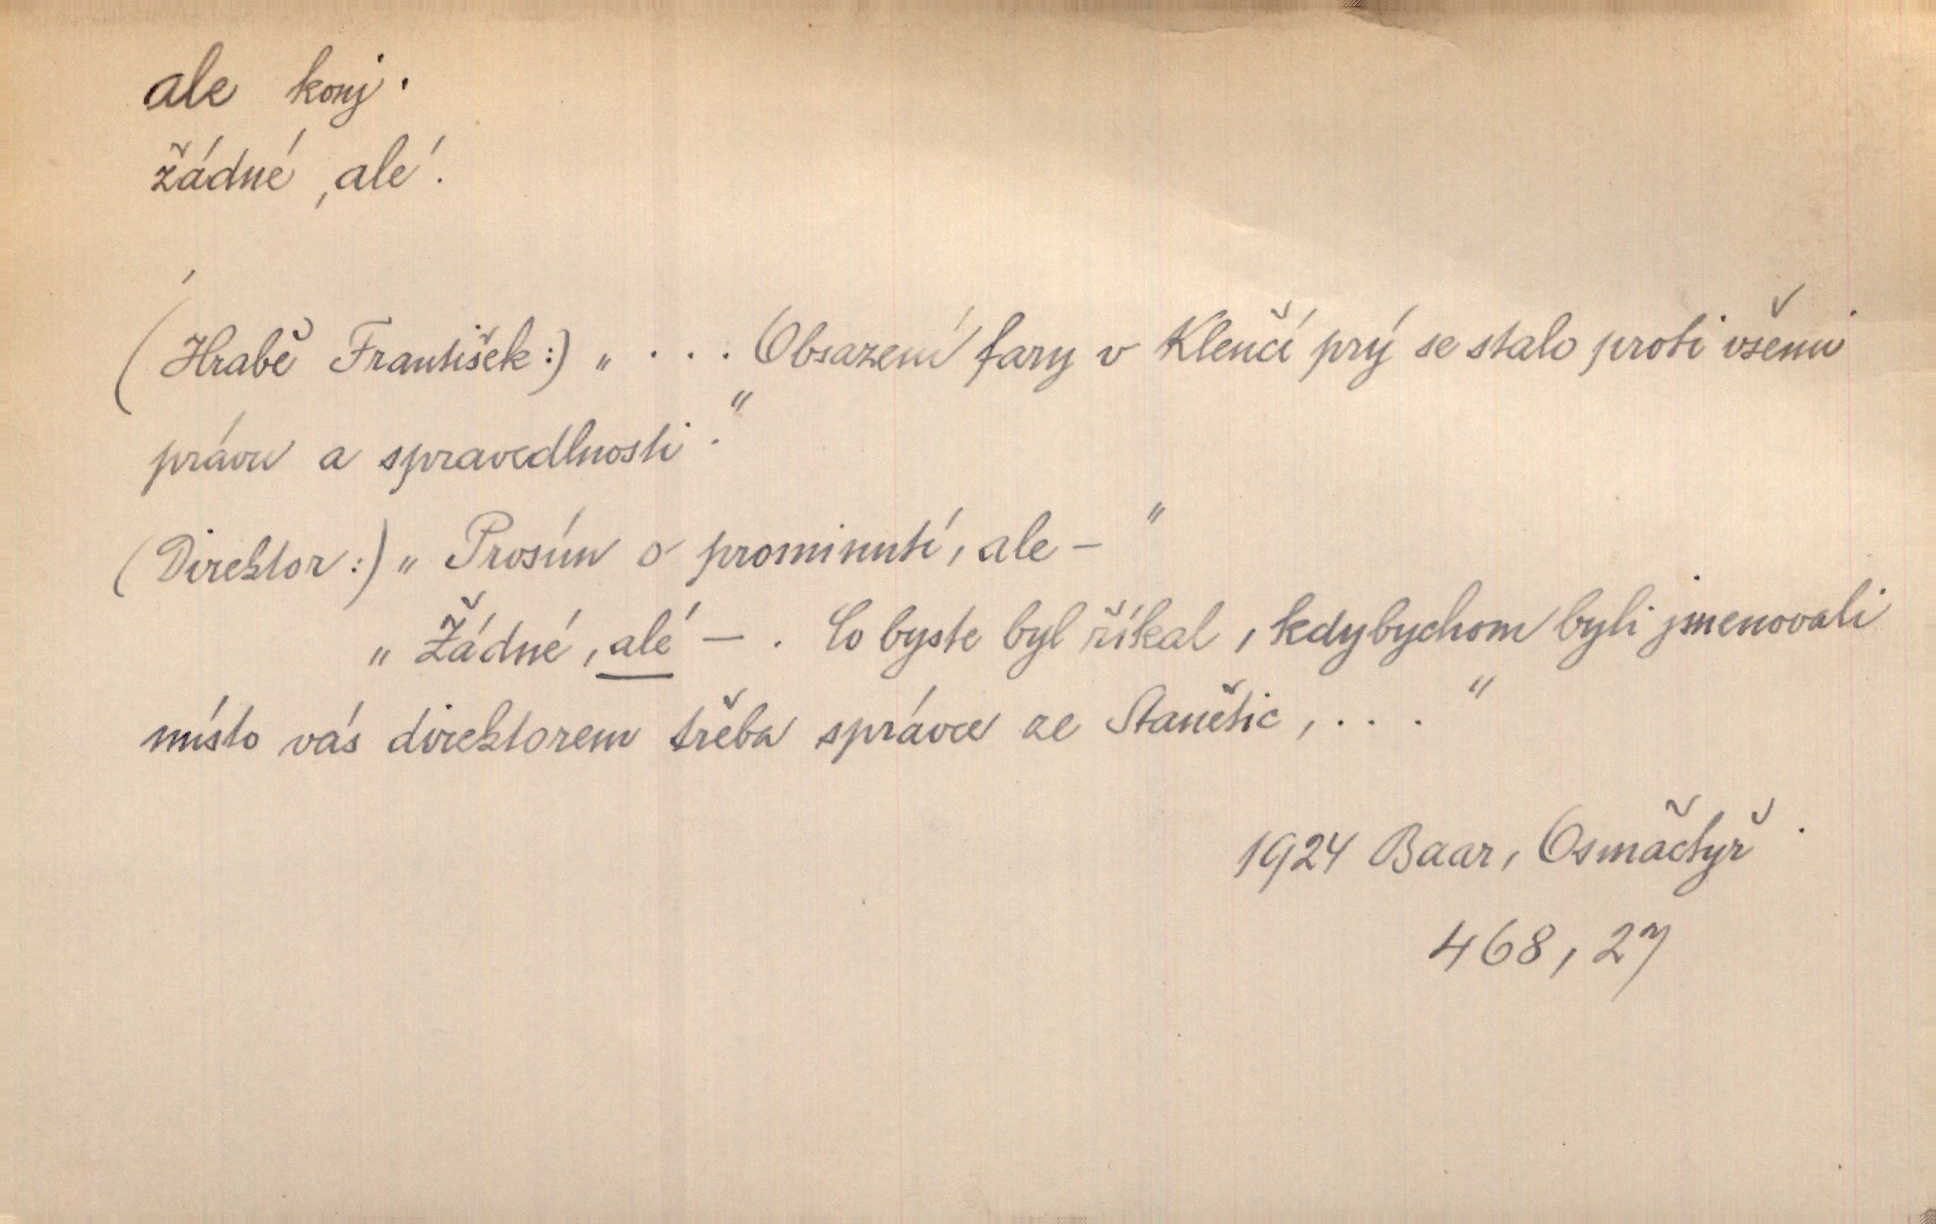 ale konj.
žádné ‚ale‘.
(Hrabě František:) „ . . . Obsazení fary v Klenčí prý se stalo proti všemu
právu a spravedlnosti.“
(Direktor:) „Prosím o prominutí, ale – “
„Žádné ‚ale‘ – . Co byste byl říkal, kdybychom byli jmenovali
místo vás direktorem třeba správce ze Stanětic, . . . “
1924 Baar, Osmačtyř.
468, 27